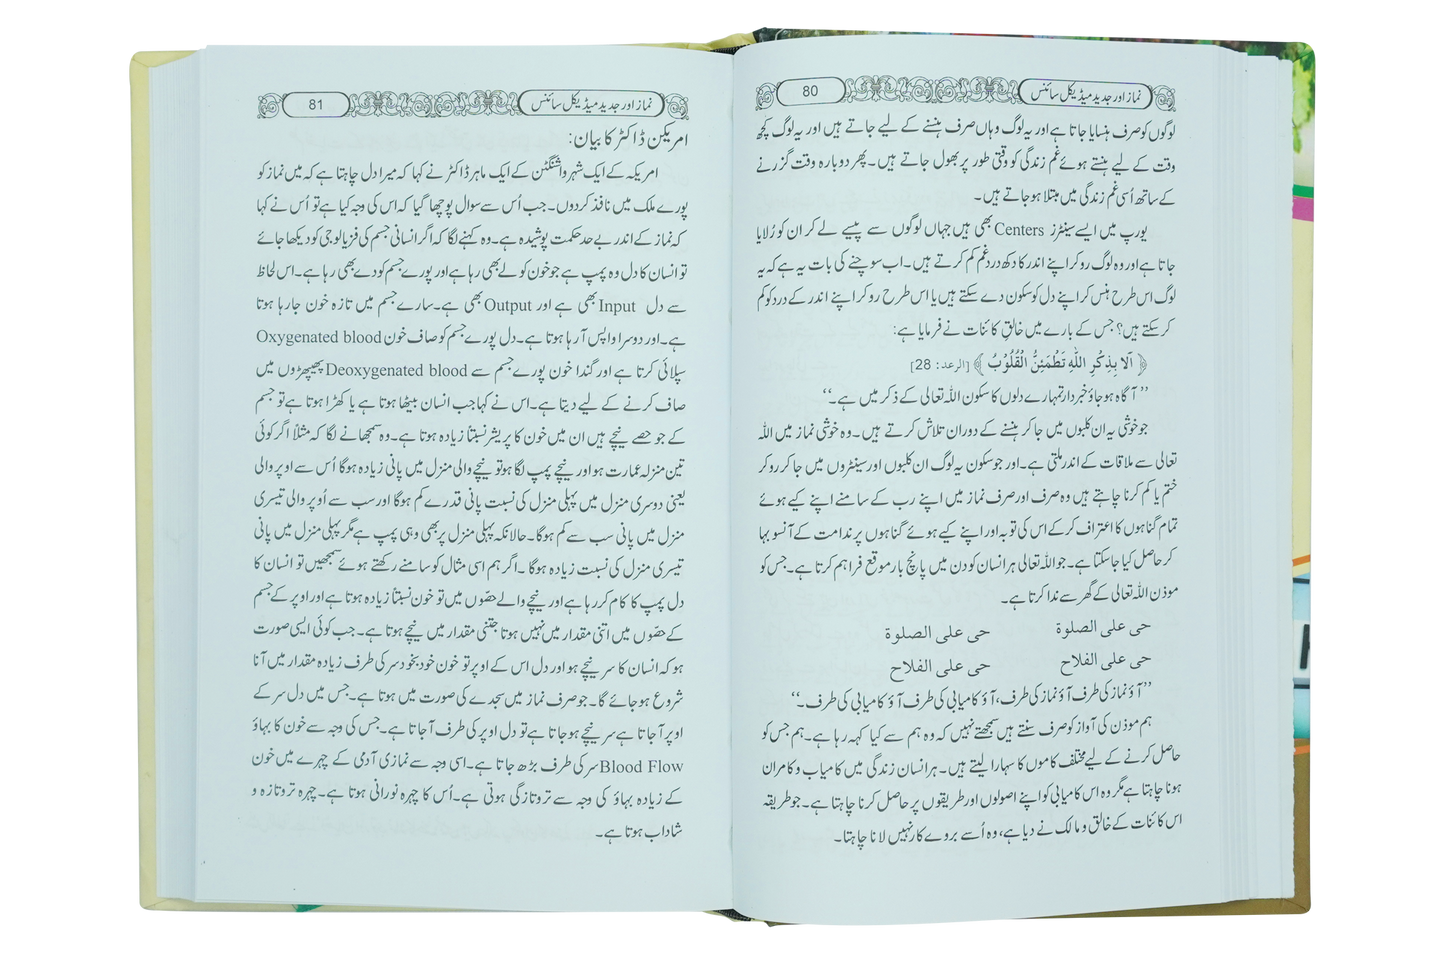 نماز اور جدید میڈیکل سائنس 80
لوگوں کو صرف ہنسایا جاتا ہے اور یہ لوگ وہاں صرف ہنسنے کے لیے جاتے ہیں اور یہ لوگ کچھ
وقت کے لیے ہنستے ہوئے غم زندگی کو وقتی طور پر بھول جاتے ہیں۔ پھر دوبارہ وقت گزرنے
کے ساتھ اُسی غم زندگی میں مبتلا ہو جاتے ہیں۔
یورپ میں ایسے سینٹرز Centers بھی ہیں جہاں لوگوں سے پیسے لے کر ان کو رُلایا
جاتا ہے اور وہ لوگ رو کر اپنے اندر کا دکھ درد غم کم کرتے ہیں۔ اب سوچنے کی بات یہ ہے کہ یہ
لوگ اس طرح ہنس کر اپنے دل کو سکون دے سکتے ہیں یا اس طرح رو کر اپنے اندر کے درد کو کم
کر سکتے ہیں؟ جس کے بارے میں خالقِ کائنات نے فرمایا ہے:
﴿ اَلَا بِذِكْرِ اللّٰهِ تَطْمَئِنُّ الْقُلُوْبُ ﴾ [الرعد: 28]
’’آگاہ ہو جاؤ خبردار تمہارے دلوں کا سکون اللہ تعالیٰ کے ذکر میں ہے۔‘‘
جو خوشی یہ ان کلبوں میں جا کر ہنسنے کے دوران تلاش کرتے ہیں۔ وہ خوشی نماز میں اللہ
تعالیٰ سے ملاقات کے اندر ملتی ہے۔ اور جو سکون یہ لوگ ان کلبوں اور سینٹروں میں جا کر رو کر
ختم یا کم کرنا چاہتے ہیں وہ صرف اور صرف نماز میں اپنے رب کے سامنے اپنے کیے ہوئے
تمام گناہوں کا اعتراف کر کے اس کی توبہ اور اپنے کیے ہوئے گناہوں پر ندامت کے آنسو بہا
کر حاصل کیا جا سکتا ہے۔ جو اللہ تعالیٰ ہر انسان کو دن میں پانچ بار موقع فراہم کرتا ہے۔ جس کو
موذن اللہ تعالیٰ کے گھر سے ندا کرتا ہے۔
حی علی الصلوۃ حی علی الصلوۃ
حی علی الفلاح حی علی الفلاح
’’آؤ نماز کی طرف آؤ نماز کی طرف، آؤ کامیابی کی طرف آؤ کامیابی کی طرف۔‘‘
ہم موذن کی آواز کو صرف سنتے ہیں سمجھتے نہیں کہ وہ ہم سے کیا کہہ رہا ہے۔ ہم جس کو
حاصل کرنے کے لیے مختلف کاموں کا سہارا لیتے ہیں۔ ہر انسان زندگی میں کامیاب و کامران
ہونا چاہتا ہے مگر وہ اس کامیابی کو اپنے اصولوں اور طریقوں پر حاصل کرنا چاہتا ہے۔ جو طریقہ
اس کائنات کے خالق و مالک نے دیا ہے، وہ اُسے بروے کار نہیں لانا چاہتا۔
نماز اور جدید میڈیکل سائنس 81
امریکن ڈاکٹر کا بیان:
امریکہ کے ایک شہر واشنگٹن کے ایک ماہر ڈاکٹر نے کہا کہ میرا دل چاہتا ہے کہ میں نماز کو
پورے ملک میں نافذ کر دوں۔ جب اُس سے سوال پوچھا گیا کہ اس کی وجہ کیا ہے تو اُس نے کہا
کہ نماز کے اندر بے حد حکمت پوشیدہ ہے۔ وہ کہنے لگا کہ اگر انسانی جسم کی فزیالوجی کو دیکھا جائے
تو انسان کا دل وہ پمپ ہے جو خون کو لے بھی رہا ہے اور پورے جسم کو دے بھی رہا ہے۔ اس لحاظ
سے دل Input بھی ہے اور Output بھی ہے۔ سارے جسم میں تازہ خون جا رہا ہوتا
ہے۔ اور دوسرا واپس آ رہا ہوتا ہے۔ دل پورے جسم کو صاف خون Oxygenated blood
سپلائی کرتا ہے اور گندا خون پورے جسم سے Deoxygenated blood پھیپھڑوں میں
صاف کرنے کے لیے دیتا ہے۔ اس نے کہا جب انسان بیٹھا ہوتا ہے یا کھڑا ہوتا ہے تو جسم
کے جو حصے نیچے ہیں ان میں خون کا پریشر نسبتاً زیادہ ہوتا ہے۔ وہ سمجھانے لگا کہ مثلاً اگر کوئی
تین منزلہ عمارت ہو اور نیچے پمپ لگا ہو تو نیچے والی منزل میں پانی زیادہ ہوگا اُس سے اوپر والی
یعنی دوسری منزل میں پہلی منزل کی نسبت پانی قدرے کم ہوگا اور سب سے اُوپر والی تیسری
منزل میں پانی سب سے کم ہوگا۔ حالانکہ پہلی منزل پر بھی وہی پمپ ہے مگر پہلی منزل میں پانی
تیسری منزل کی نسبت زیادہ ہوگا۔ اگر ہم اسی مثال کو سامنے رکھتے ہوئے سمجھیں تو انسان کا
دل پمپ کا کام کر رہا ہے اور نیچے والے حصّوں میں تو خون نسبتاً زیادہ ہوتا ہے اور اوپر کے جسم
کے حصّوں میں اتنی مقدار میں نہیں ہوتا جتنی مقدار میں نیچے ہوتا ہے۔ جب کوئی ایسی صورت
ہو کہ انسان کا سر نیچے ہو اور دل اس کے اوپر تو خون خود بخود سر کی طرف زیادہ مقدار میں آنا
شروع ہو جائے گا۔ جو صرف نماز میں سجدے کی صورت میں ہوتا ہے۔ جس میں دل سر کے
اوپر آ جاتا ہے سر نیچے ہو جاتا ہے تو دل اوپر کی طرف آ جاتا ہے۔ جس کی وجہ سے خون کا بہاؤ
Blood Flow سر کی طرف بڑھ جاتا ہے۔ اسی وجہ سے نمازی آدمی کے چہرے میں خون
کے زیادہ بہاؤ کی وجہ سے تروتازگی ہوتی ہے۔ اُس کا چہرہ نورانی ہوتا ہے۔ چہرہ تروتازہ و
شاداب ہوتا ہے۔